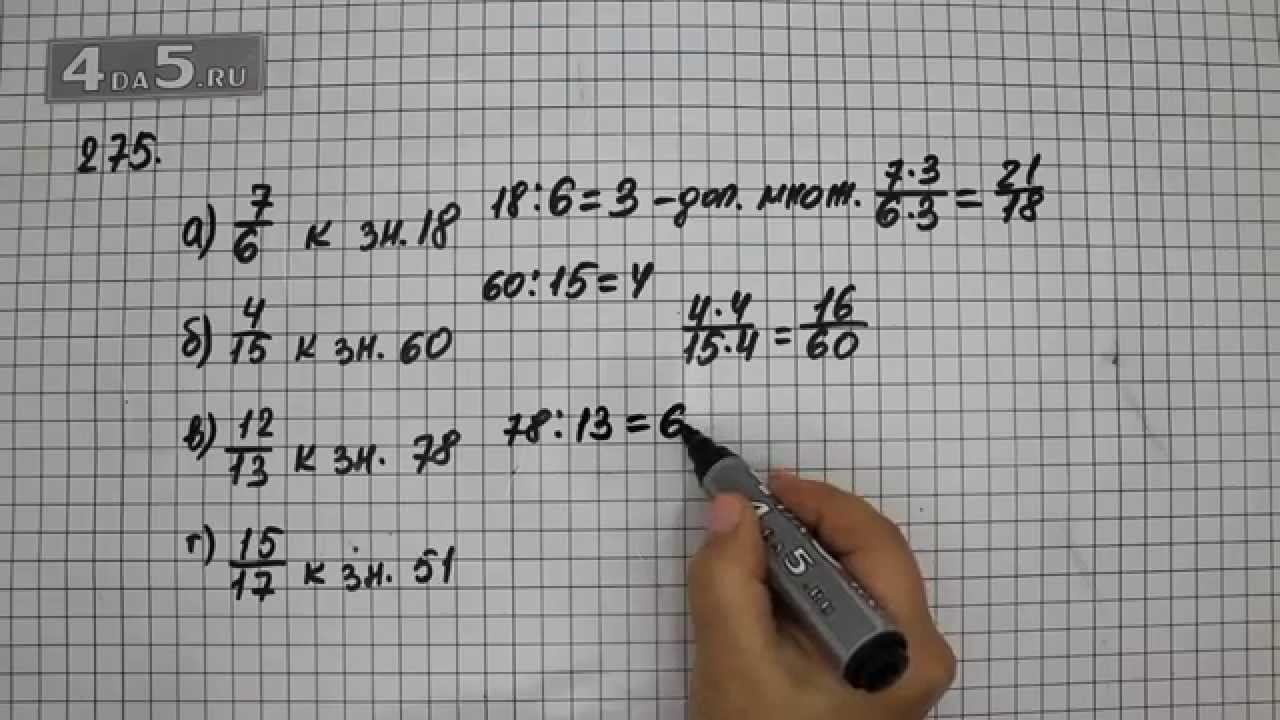 4DA5.RU
275.
а) 7/6 к зн. 18 18:6=3 – доп. множ. 7·3/6·3 = 21/18
б) 4/15 к зн. 60 60:15=4 4·4/15·4 = 16/60
в) 12/13 к зн. 78 78:13=6
г) 15/17 к зн. 51